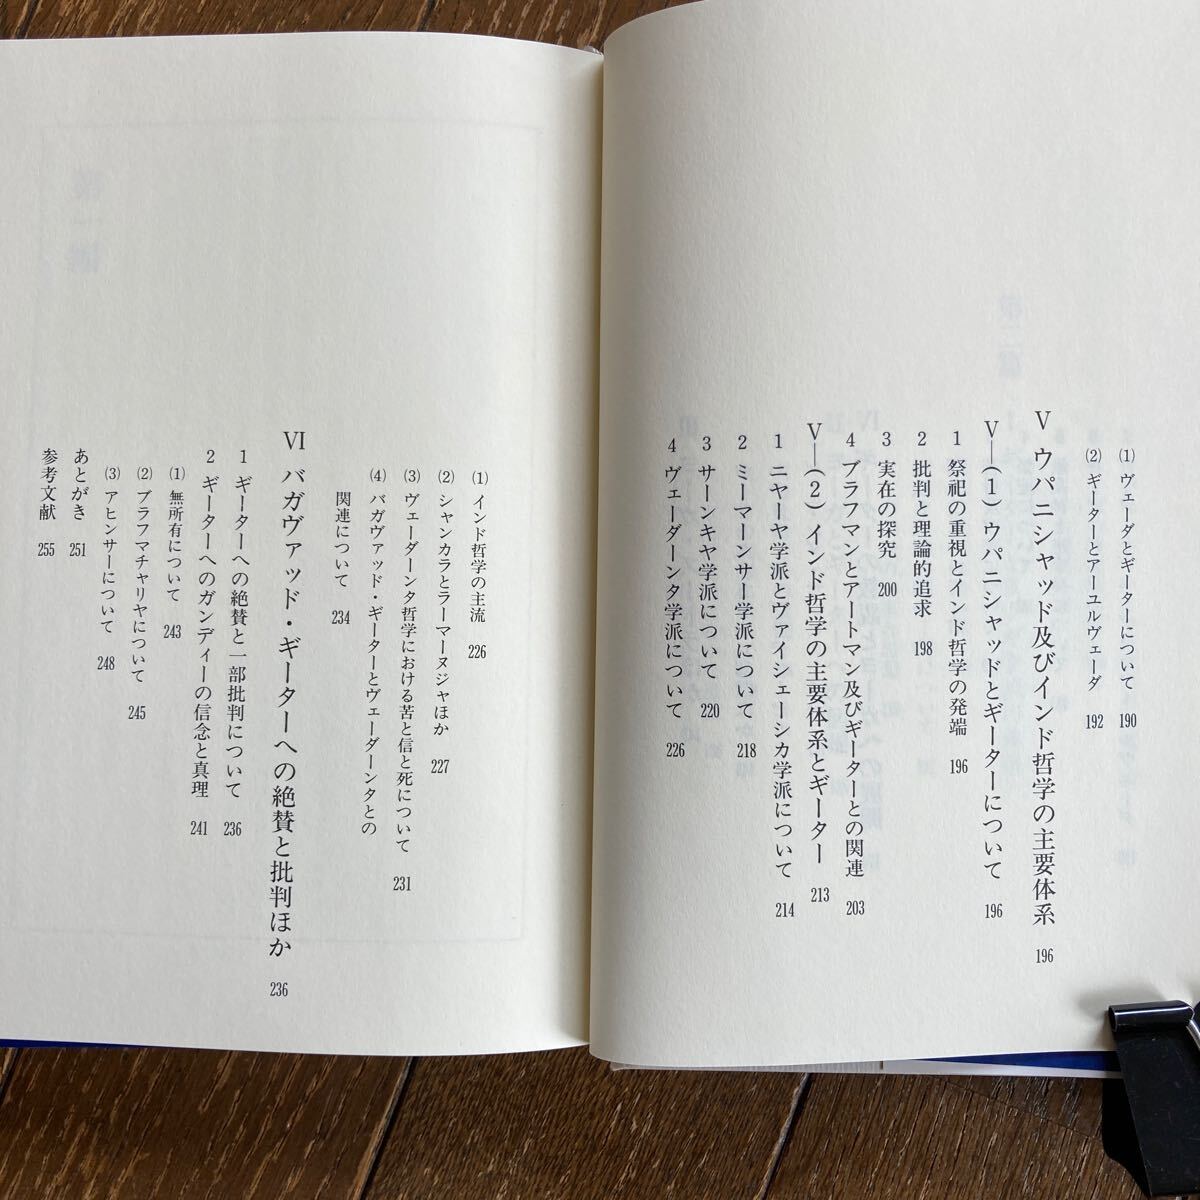 ⑴ ヴェーダとギーターについて 190
⑵ ギーターとアーユルヴェーダ 192
Ⅴ ウパニシャッド及びインド哲学の主要体系 196
Ⅴ—(1) ウパニシャッドとギーターについて 196
1 祭祀の重視とインド哲学の発端 196
2 批判と理論的追求 198
3 実在の探究 200
4 ブラフマンとアートマン及びギーターとの関連 203
Ⅴ—(2) インド哲学の主要体系とギーター 213
1 ニヤーヤ学派とヴァイシェーシカ学派について 214
2 ミーマーンサー学派について 218
3 サーンキヤ学派について 220
4 ヴェーダーンタ学派について 226
⑴ インド哲学の主流 226
⑵ シャンカラとラーマーヌジャほか 227
⑶ ヴェーダーンタ哲学における苦と信と死について 231
⑷ バガヴァッド・ギーターとヴェーダーンタとの
関連について 234
Ⅵ バガヴァッド・ギーターへの絶賛と批判ほか 236
1 ギーターへの絶賛と一部批判について 236
2 ギーターへのガンディーの信念と真理 241
⑴ 無所有について 243
⑵ ブラフマチャリヤについて 245
⑶ アヒンサーについて 248
あとがき 251
参考文献 255